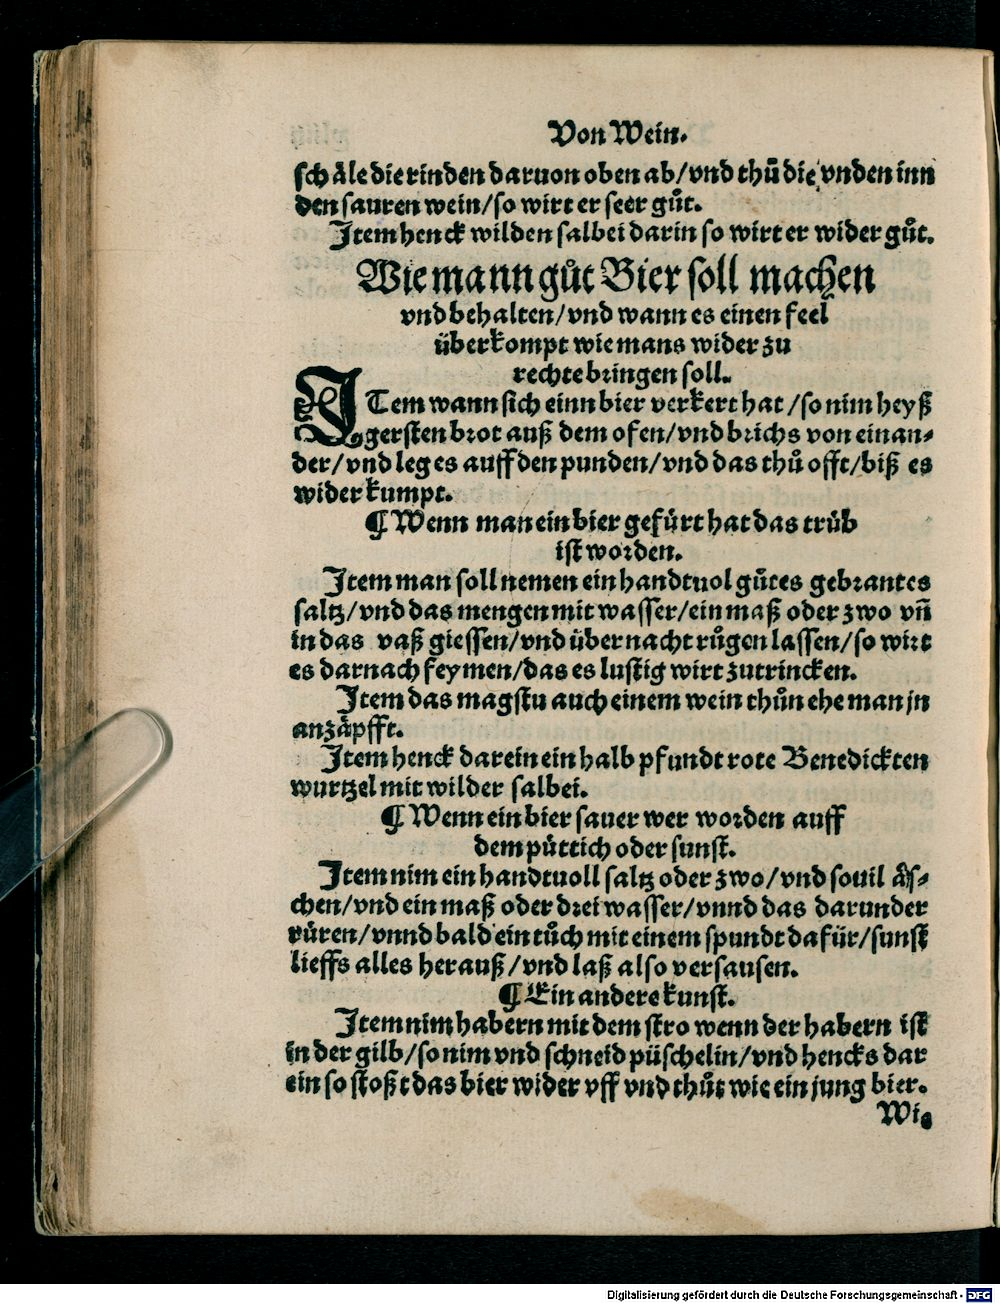 Von Wein.
schäle die rinden daruon oben ab/vnd thů die vnden inn
den sauren wein/so wirt er seer gůt.
Item henck wilden salbei darin so wirt er wider gůt.
Wie mann gůt Bier soll machen
vnd behalten/vnd wann es einen feel
überkompt wie mans wider zu
rechte bringen soll.
ITem wann sich einn bier verkert hat/so nim heyß
gersten brot auß dem ofen/vnd brichs von einan-
der/vnd leg es auff den punden/vnd das thů offt/biß es
wider kumpt.
¶ Wenn man ein bier gefürt hat das trüb
ist worden.
Item man soll nemen ein handtuol gůtes gebrantes
saltz/vnd das mengen mit wasser/ein maß oder zwo vñ
in das vaß giessen/vnd über nacht růgen lassen/so wirt
es darnach feymen/das es lustig wirt zutrincken.
Item das magstu auch einem wein thůn ehe man jn
anzäpfft.
Item henck darein ein halb pfundt rote Benedickten
wurtzel mit wilder salbei.
¶ Wenn ein bier sauer wer worden auff
dem püttich oder sunst.
Item nim ein handtuoll saltz oder zwo/vnd souil äs-
chen/vnd ein maß oder drei wasser/vnnd das darunder
rüren/vnnd bald ein tůch mit einem spundt dafür/sunst
lieffs alles herauß/vnd laß also versausen.
¶ Ein andere kunst.
Item nim habern mit dem stro wenn der habern ist
in der gilb/so nim vnd schneid püschelin/vnd hencks dar
ein so stoßt das bier wider vff vnd thůt wie ein jung bier.
Wie
Digitalisierung gefördert durch die Deutsche Forschungsgemeinschaft - DFG